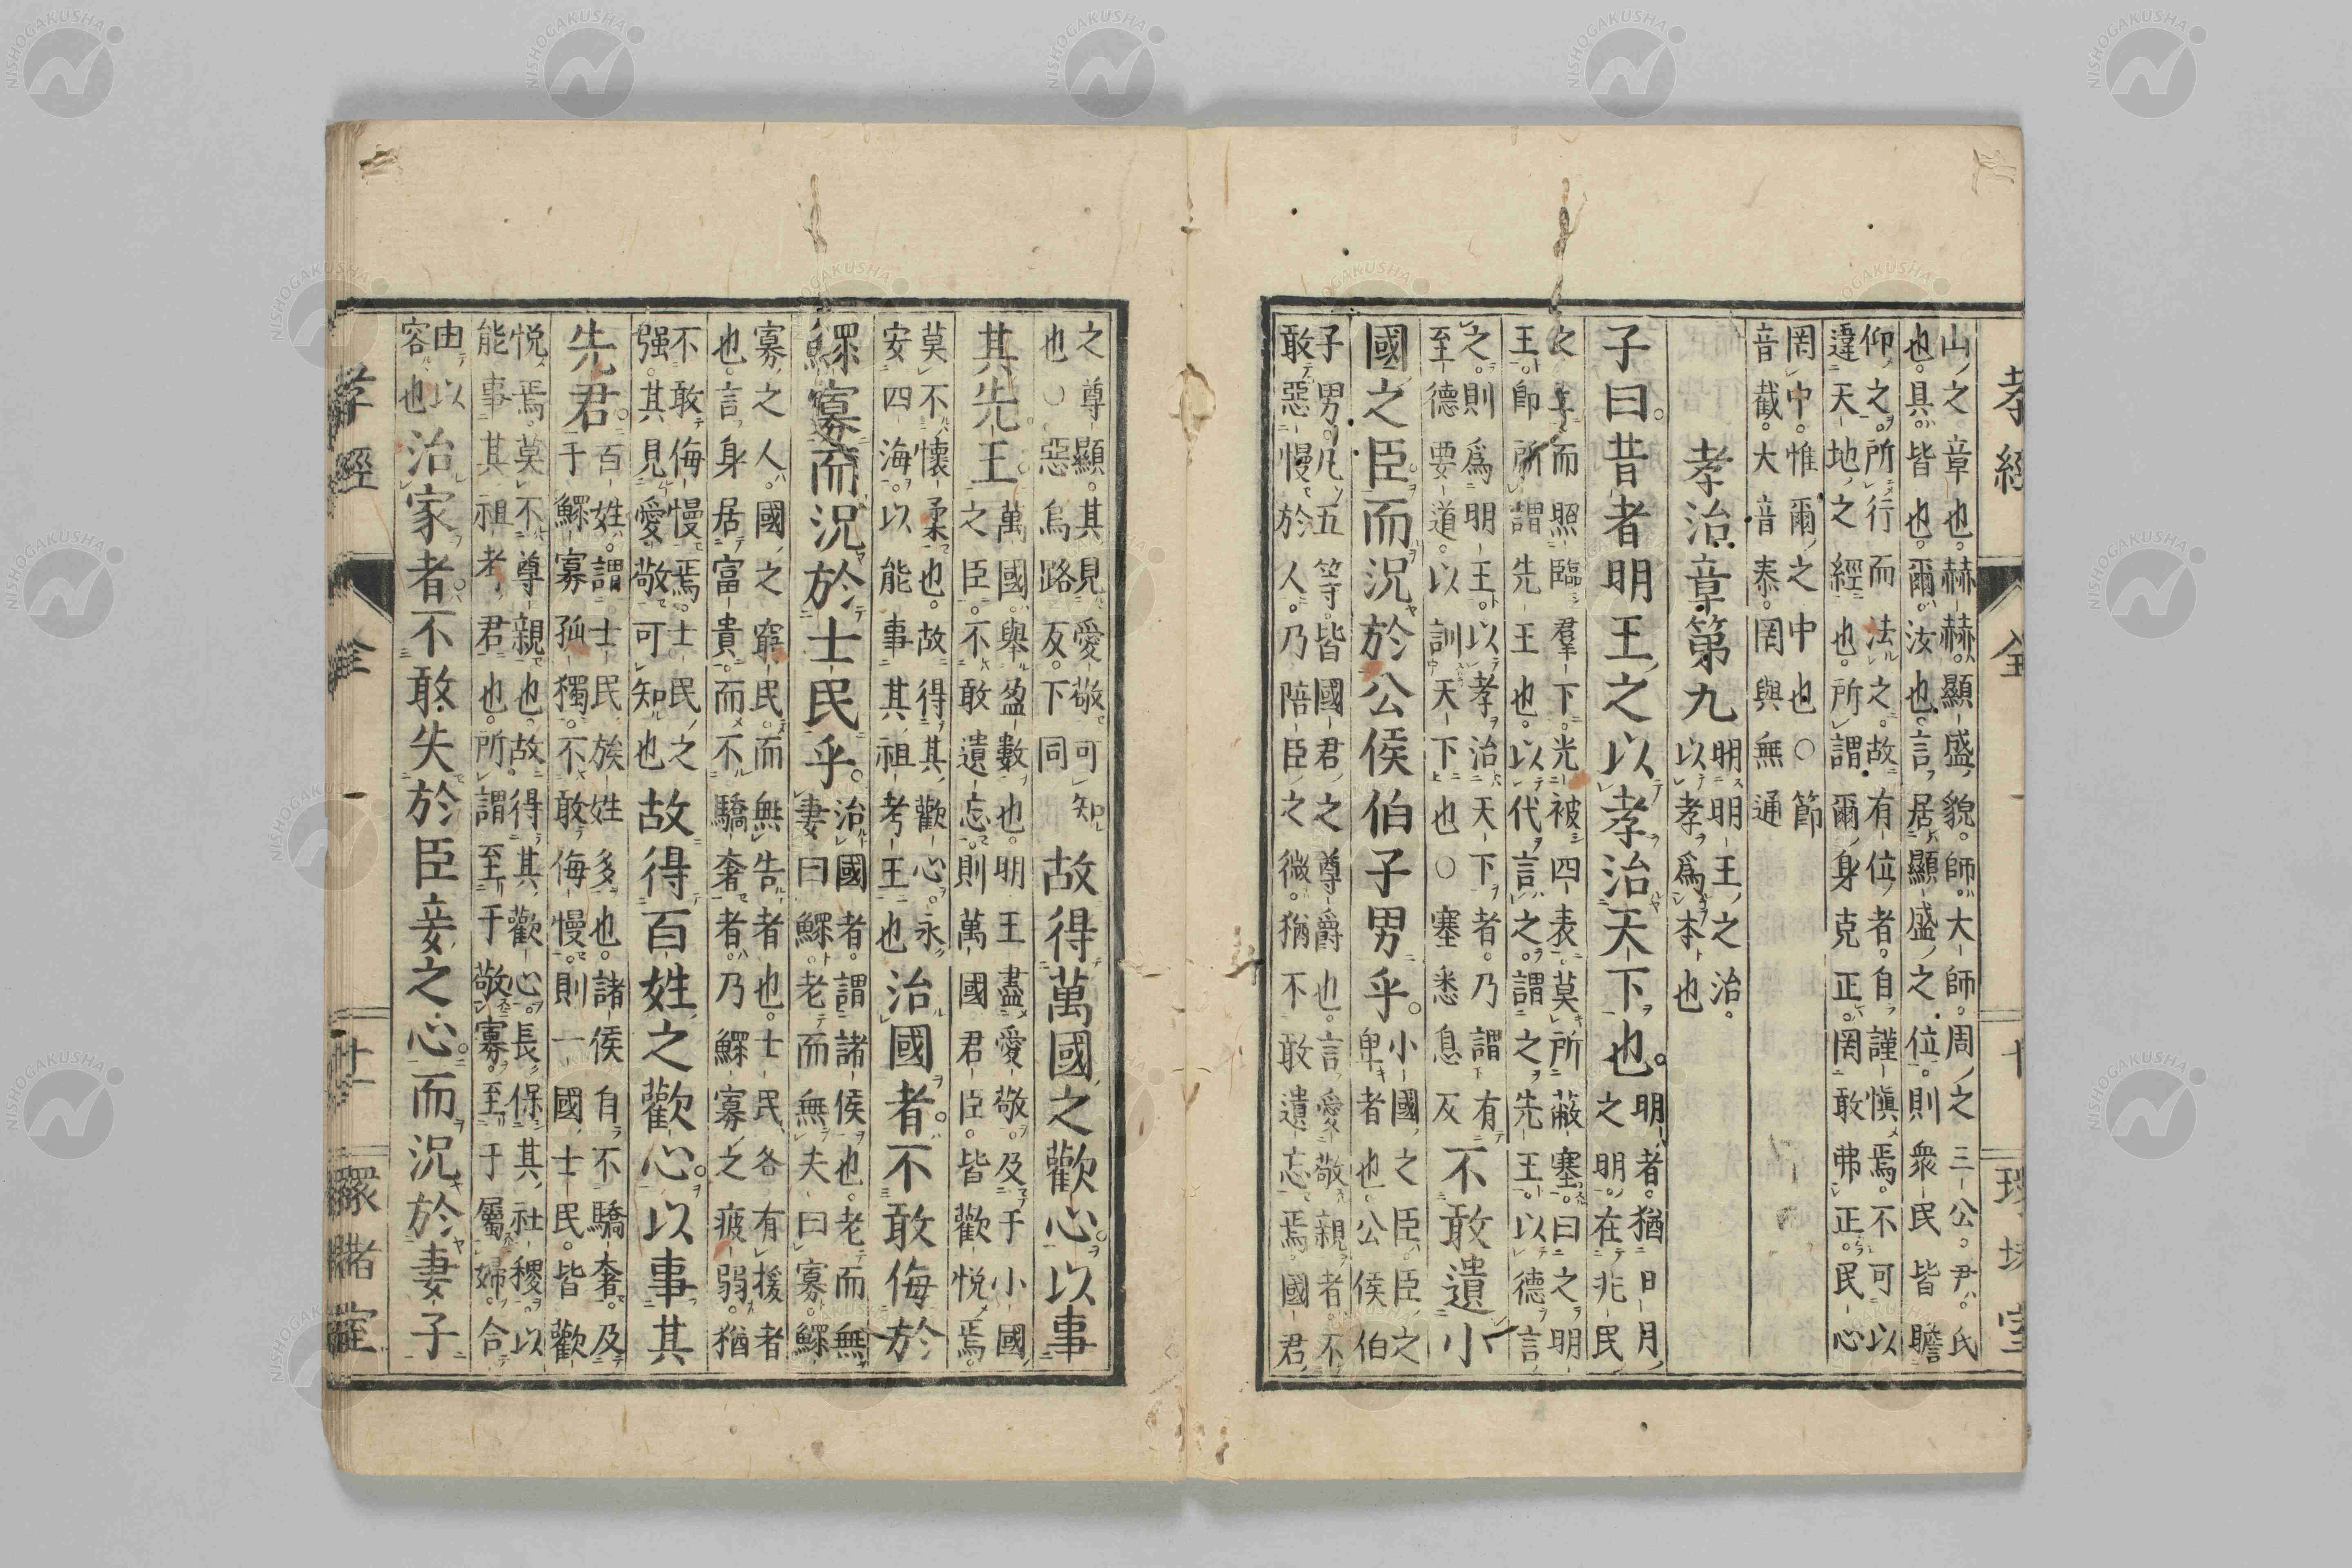 孝經 全 一
山之章也赫赫顯盛貌師大師周之三公尹氏
也具皆也爾汝也言居顯盛之位則衆民皆瞻
仰之所行而法之故有位者自謹愼焉不可以
違天地之經也所謂爾身克正罔敢弗正民心
罔中惟爾之中也○節
音截大音泰罔與無通
孝治章第九
明明王之治。
以孝爲本也
子曰。昔者明王之以孝治天下也。
明者。猶日月
之明。在兆民
之而照臨羣下。光被四表。莫所蔽塞。曰之明
王。卽所謂先王也。以代言之。謂之先王。以德言
之。則爲明王。以孝治天下者。乃謂有
至德要道。以訓天下也○塞悉息反
不敢遺小
國之臣。而況於公侯伯子男乎。
小國之臣。臣之
卑者也。公侯伯
子男。凡五等。皆國君之尊爵也。言愛敬親者。不
敢惡慢於人。乃陪臣之微。猶不敢遺忘焉。國君
之尊顯。其見愛敬可知
也○惡烏路反。下同
故得萬國之歡心。以事
其先王。
萬國。舉盈數也。明王盡愛敬。及于小國
之臣。不敢遺忘。則萬國君臣。皆歡悅焉。
莫不懷柔也。故得其歡心。永
安四海。以能事其祖考王也
治國者。不敢侮於
鰥寡。而況於士民乎。
治國者。謂諸侯也。老而無
妻曰鰥。老而無夫曰寡。鰥
寡之人。國之窮民而無告者也。士民各有援者
也。言身居富貴。而不驕奢者。乃鰥寡之疲弱。猶
不敢侮慢焉。士民之
强。其見愛敬可知也
故得百姓之歡心。以事其
先君。
百姓。謂士民族姓多也。諸侯自不驕奢。及
于鰥寡孤獨。不敢侮慢。則一國士民。皆歡
悅焉。莫不尊親也。故得其歡心。長保其社稷。以
能事其祖考君也。所謂至于敬寡。至于屬婦。合
由以
容也
治家者。不敢失於臣妾之心。而況於妻子
孝經 全 一 廿一 室